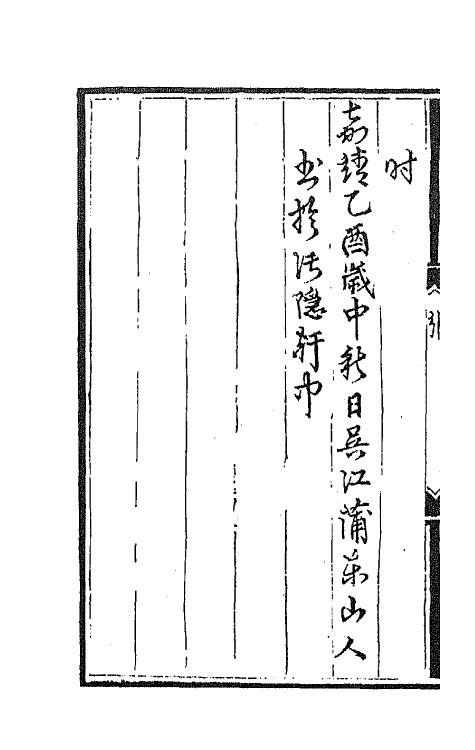 引
时
嘉靖乙酉歲中秋日吴江蒲山人
书於隱軒中